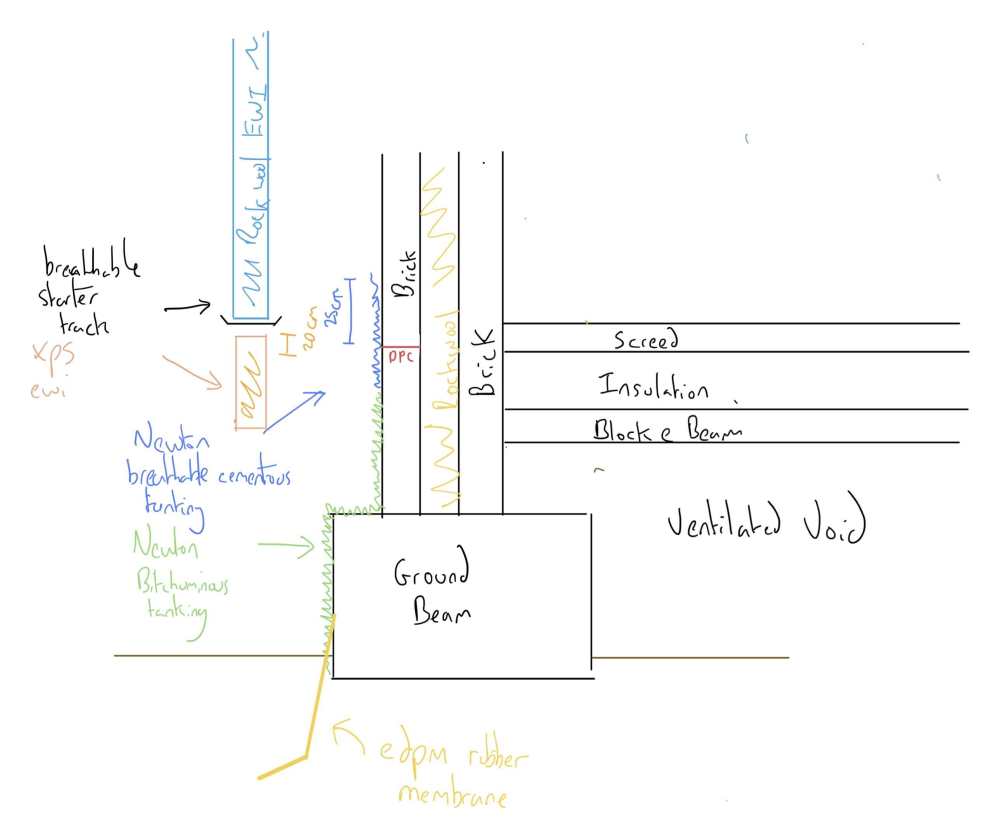 Rockwool EWI
breathable
starter
track
xps
ewi
20cm
25cm
Brick
DPC
Rockwool
Brick
Screed
Insulation
Block e Beam
Newton
breathable cementous
tanking
Newton
Bitchuminous
tanking
Ventilated Void
Ground
Beam
edpm rubber
membrane